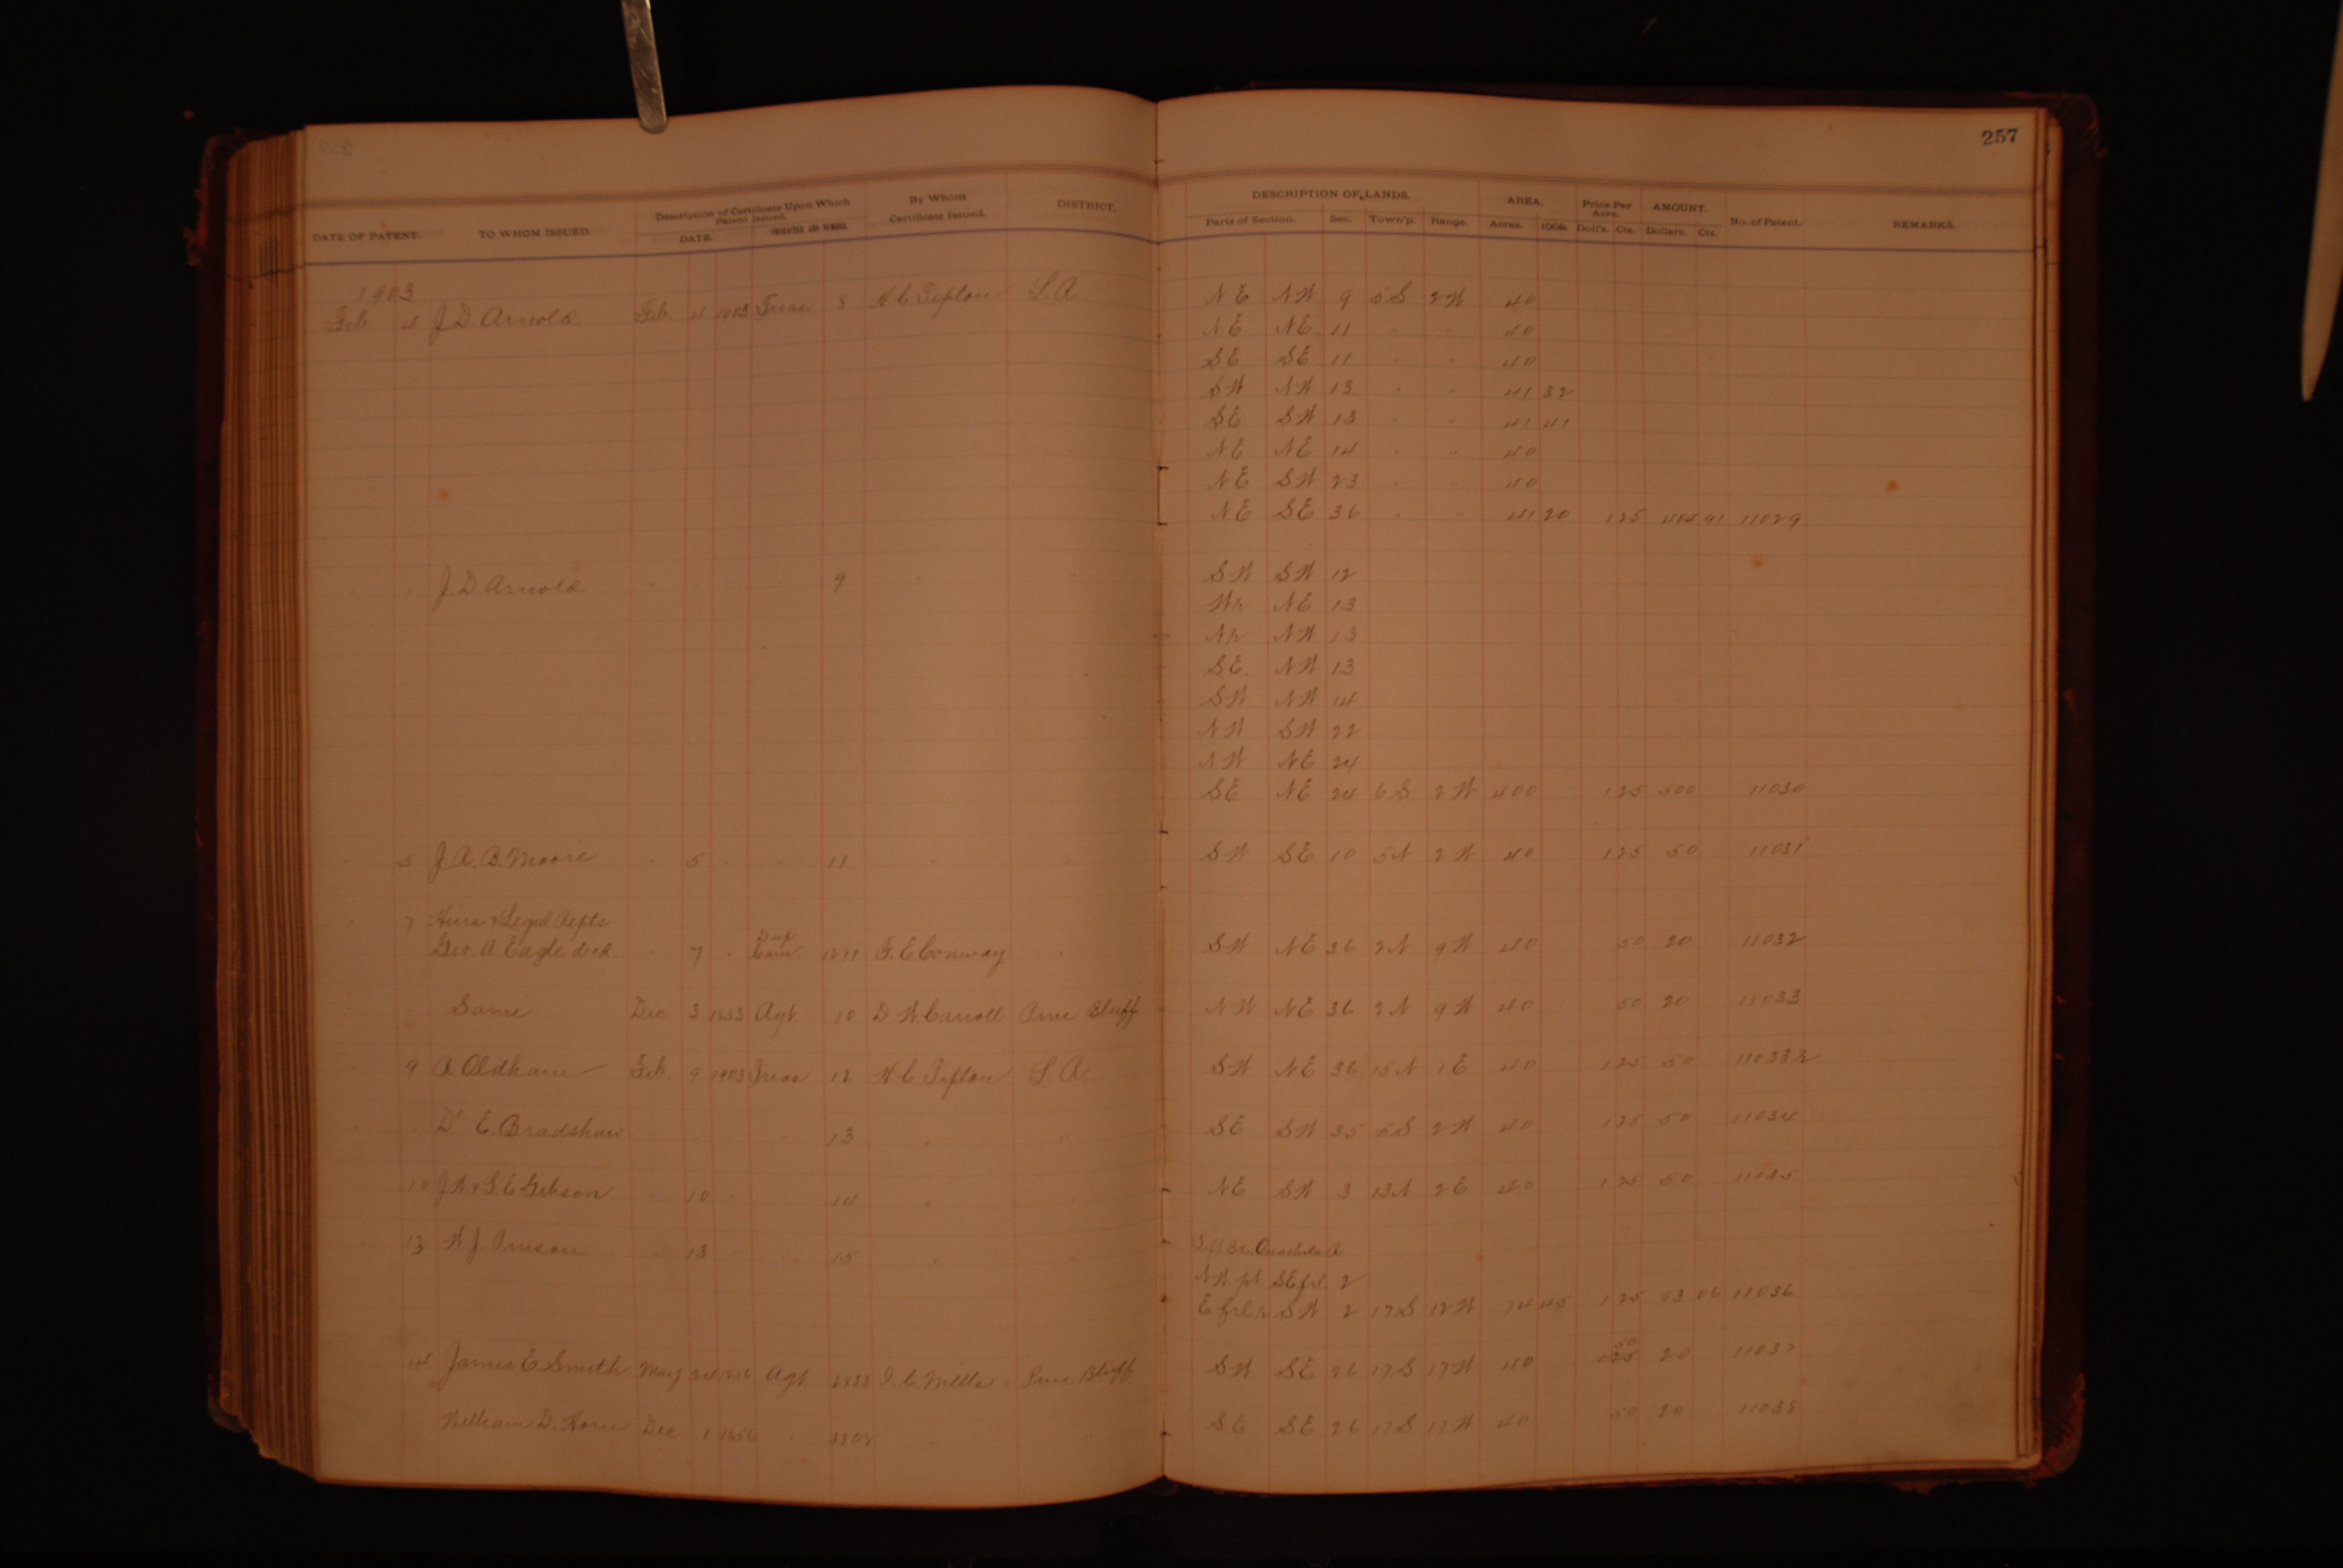 257
DATE OF PATENT. TO WHOM ISSUED. Description of Certificate Upon Which Patent Issued. DATE. CHARACTER AND NUMBER. By Whom Certificate Issued. DISTRICT. DESCRIPTION OF LANDS. Parts of Section. Sec. Town'p. Range. AREA. Acres. 100s. Price Per Acre. Doll's. Cts. AMOUNT. Dollars. Cts. No. of Patent. REMARKS.
1903
Feb 4 J. D. Arnold Feb. 4 1903 Treas 8 H C Tipton L A NE NW 9 5S 2W 40
NE NE 11 " " 40
SE SE 11 " " 40
SW NW 13 " " 41 32
SE SW 13 " " 41 41
NE NE 14 " " 40
NE SW 23 " " 40
NE SE 36 " " 41 20 125 404 91 11029
" " J. D. Arnold " " " " 9 " " SW SW 12
W½ NE 13
N½ NW 13
SE. NW 13
SW NW 14
NW SW 22
NW NE 24
SE NE 24 6S 2W 400 125 500 11030
" 5 J. A. B. Moore " 5 " " 11 " " SW SE 10 5N 2W 40 125 50 11031
" 7 Heirs & Legal Repts
Geo. A Eagle decd. " 7 " Dup. 1271 F. E Conway " SW NE 36 2N 9W 40 50 20 11032
" " Same Dec 3 1853 Agt. 10 D. W. Carroll Pine Bluff NW NE 36 2N 9W 40 50 20 11033
" 9 A Oldham Feb. 9 1903 Treas 12 H C Tipton L A. SW NE 36 15N 1E 40 125 50 11033½
" " D. E. Bradshaw " " " " 13 " " SE SW 35 5S 2W 40 125 50 11034
" 10 J W & S E Gibson " 10 " " 14 " " NE SW 3 13N 2E 40 125 50 11035
" 13 W J Pinson " 13 " " 15 " " Left Bk. Ouachita R
NW. pt SE frl. 2
E frl ½ SW 2 17S 12W 74 45 125 93 06 11036
" 14 James E. Smith May 24 1856 Agt. J. C. Mills Pine Bluff SW SE 26 17S 17W 40 50 125 20 11037
William D. Horn Dec 1 1856 " " " SE SE 26 17S 17W 40 50 20 11038